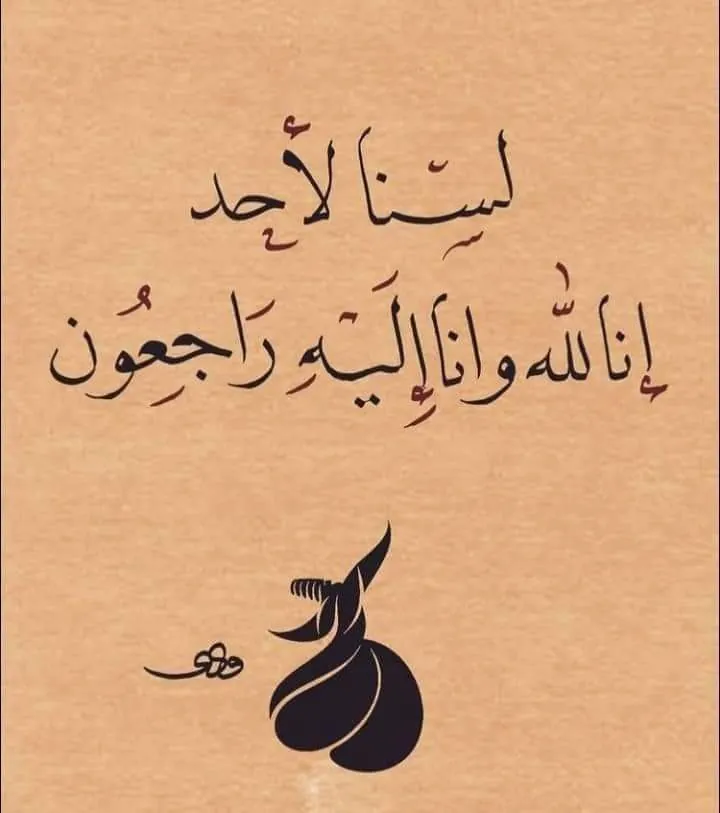 لسنا لأحد
إنا لله وانا إليه راجعون